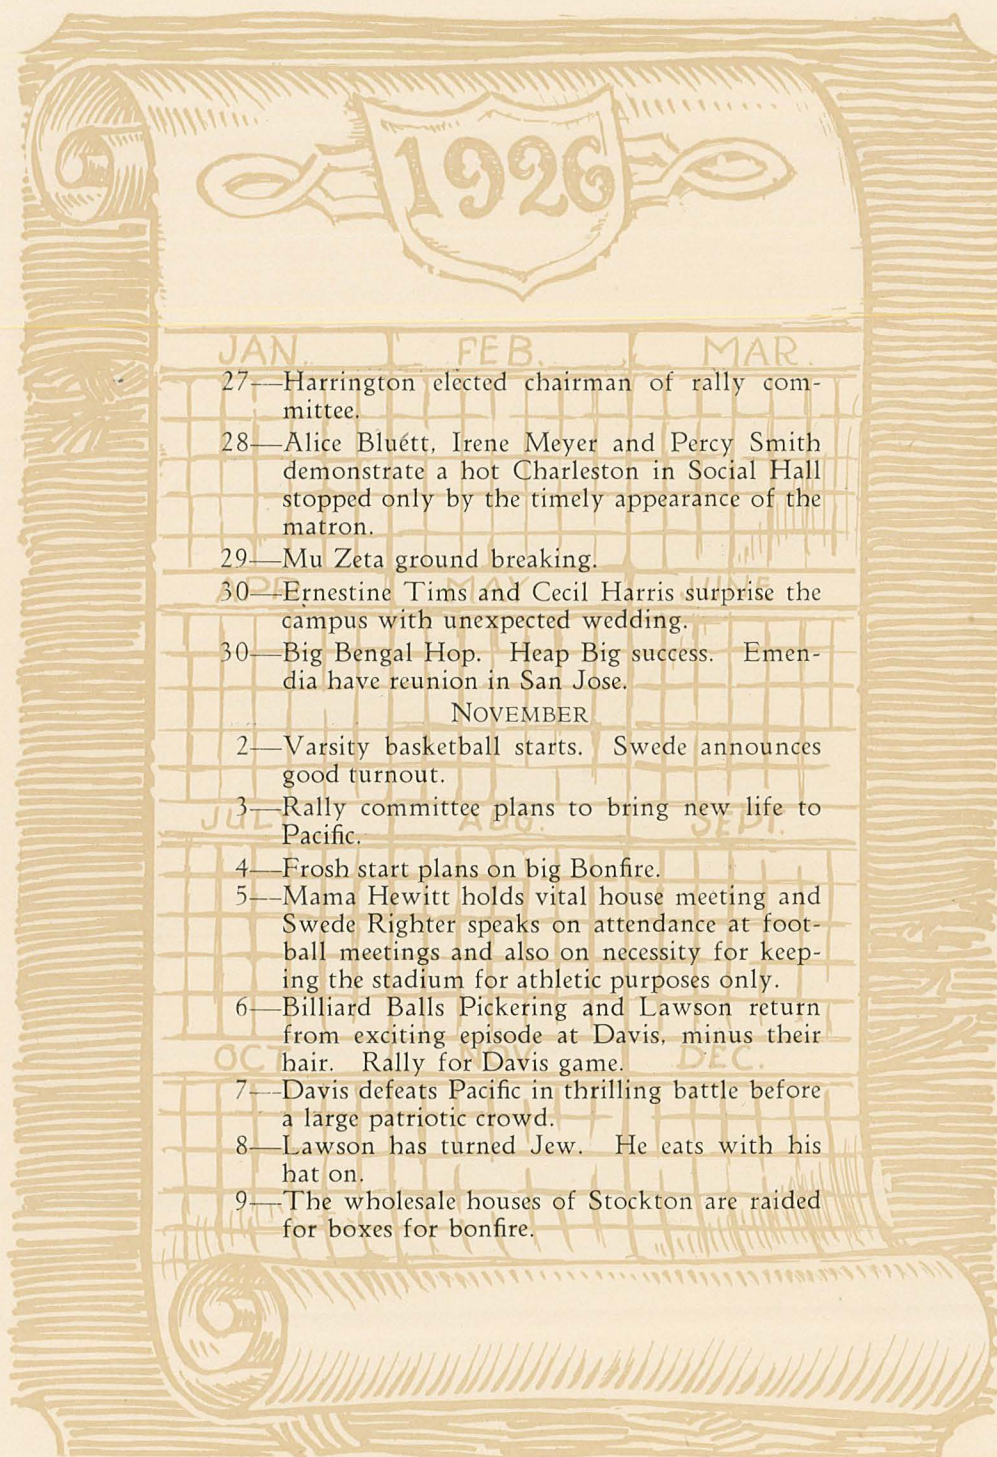 1926
JAN. FEB. MAR.
27—Harrington elected chairman of rally com-
mittee.
28—Alice Bluett, Irene Meyer and Percy Smith
demonstrate a hot Charleston in Social Hall
stopped only by the timely appearance of the
matron.
29—Mu Zeta ground breaking.
APR. MAY JUNE
30—Ernestine Tims and Cecil Harris surprise the
campus with unexpected wedding.
30—Big Bengal Hop. Heap Big success. Emen-
dia have reunion in San Jose.
NOVEMBER
2—Varsity basketball starts. Swede announces
good turnout.
3—Rally committee plans to bring new life to
JULY AUG. SEPT.
Pacific.
4—Frosh start plans on big Bonfire.
5—Mama Hewitt holds vital house meeting and
Swede Righter speaks on attendance at foot-
ball meetings and also on necessity for keep-
ing the stadium for athletic purposes only.
6—Billiard Balls Pickering and Lawson return
from exciting episode at Davis, minus their
OCT. NOV. DEC.
hair. Rally for Davis game.
7—Davis defeats Pacific in thrilling battle before
a large patriotic crowd.
8—Lawson has turned Jew. He eats with his
hat on.
9—The wholesale houses of Stockton are raided
for boxes for bonfire.